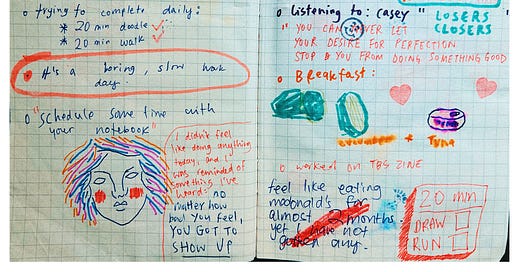 o trying to complete daily:
* 20 min doodle
* 20 min walk
It's a boring, slow work
day.
o "Schedule some time with
your notebook"
I didn't feel
like doing anything
today, and I
was reminded of
something I've
heard: no
matter how
bad you feel,
YOU GOT TO
SHOW UP
o Listening to: Casey "LOSERS
CLOSERS
"YOU CAN NEVER LET
YOUR DESIRE FOR PERFECTION
STOP YOU FROM DOING SOMETHING GOOD
o Breakfast:
cucumber + Tuna
o worked on TBS ZINE
feel like eating
mcdonald's for
almost 2 months.
yet I have not
gotten any.
20 min
DRAW
RUN